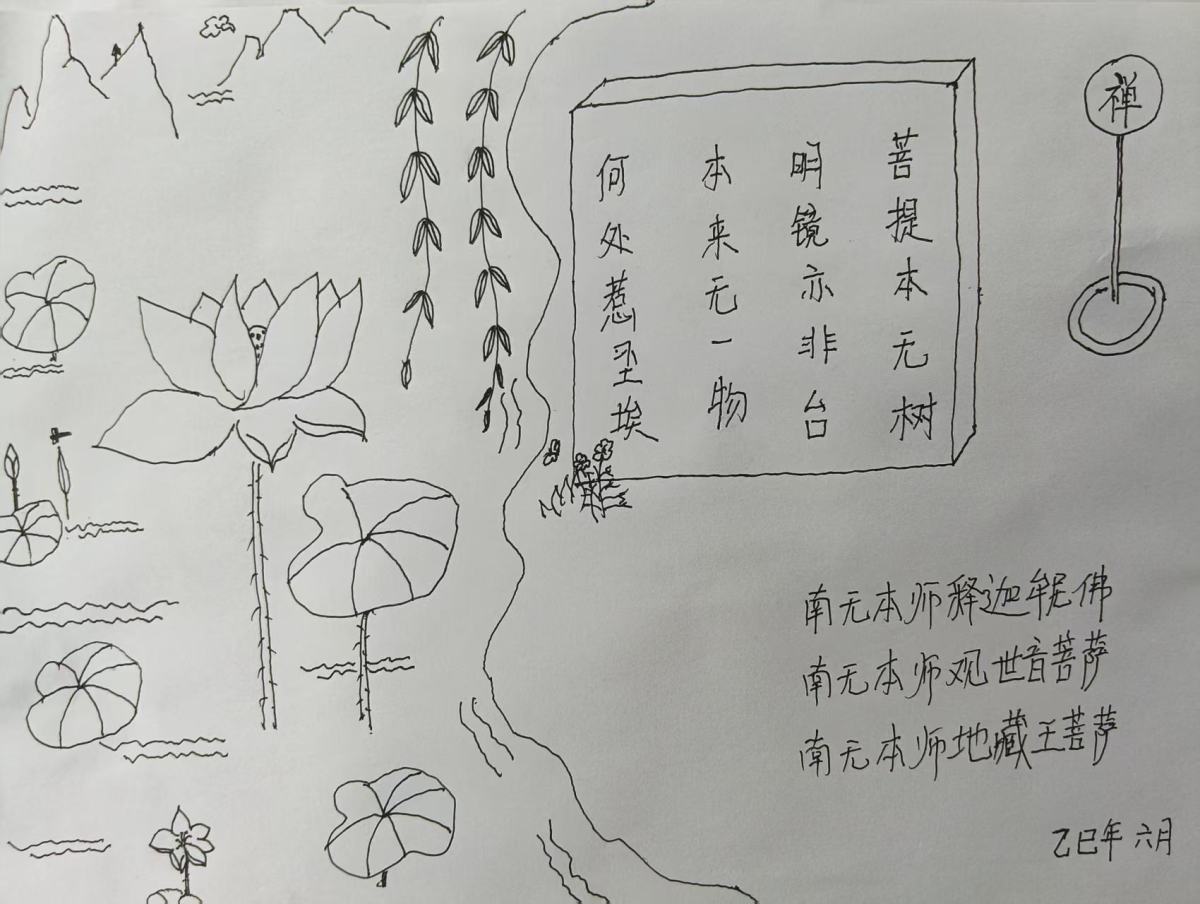 禅
菩提本无树
明镜亦非台
本来无一物
何处惹尘埃
南无本师释迦牟尼佛
南无本师观世音菩萨
南无本师地藏王菩萨
乙巳年六月